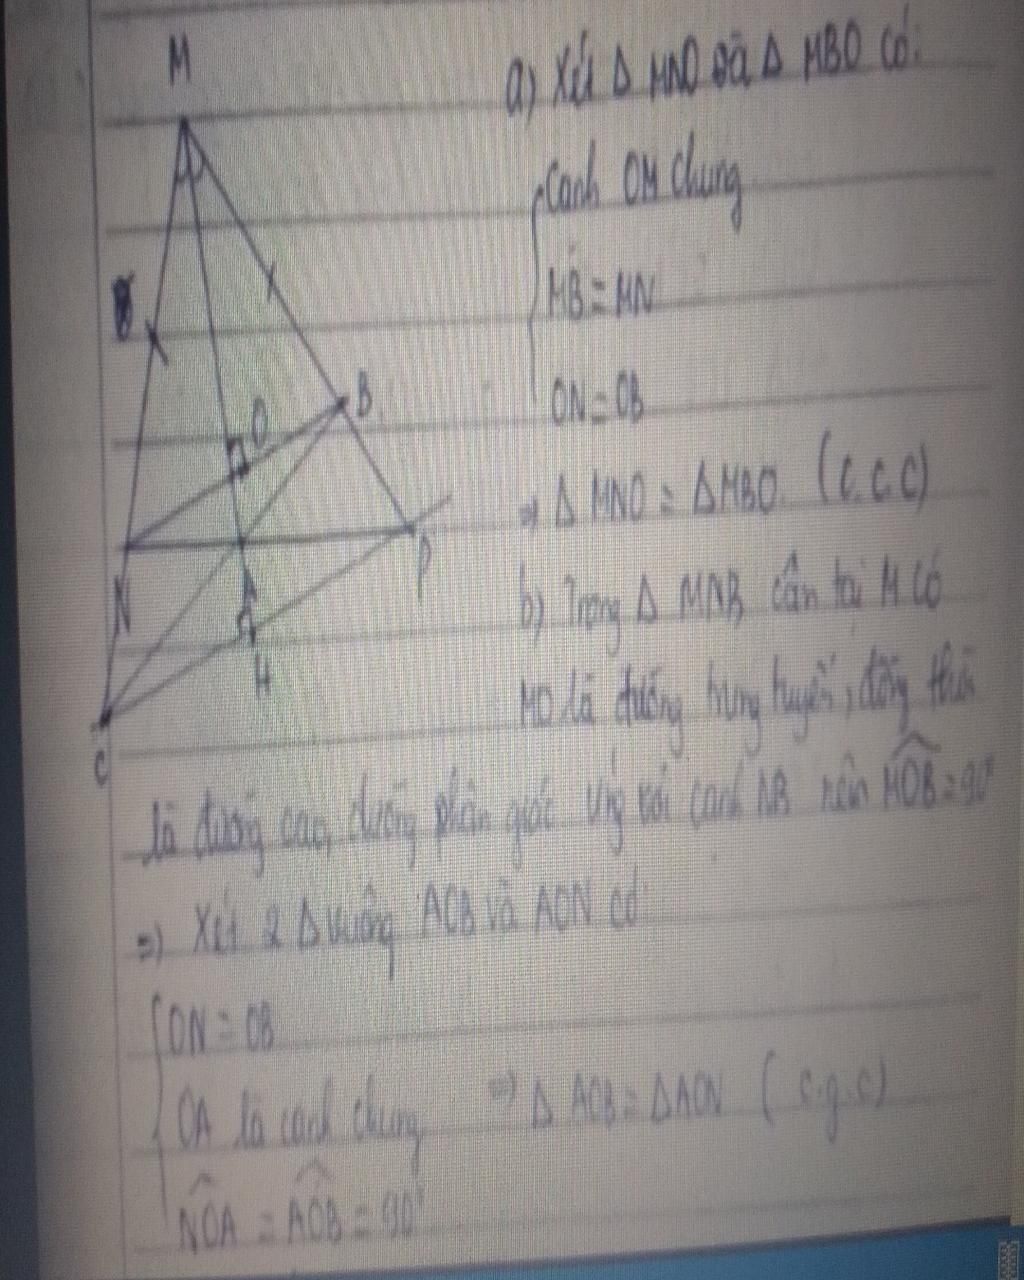 M
a) Xét Δ MNO và Δ MBO có:
Cạnh OM chung
MB = MN
O
B
ON = OB
⇒ Δ MNO = Δ MBO (c.c.c)
N
A
P
H
C
b) Trong Δ MNB cân tại M có
MO là đường trung tuyến, đồng thời
là đường cao, đường phân giác ứng với cạnh NB nên MÔB = 90°
=) Xét 2 Δ vuông AOB và AON có
ON = OB
OA là cạnh chung ⇒ Δ AOB = Δ AON (c.g.c)
NÔA = AÔB = 90°